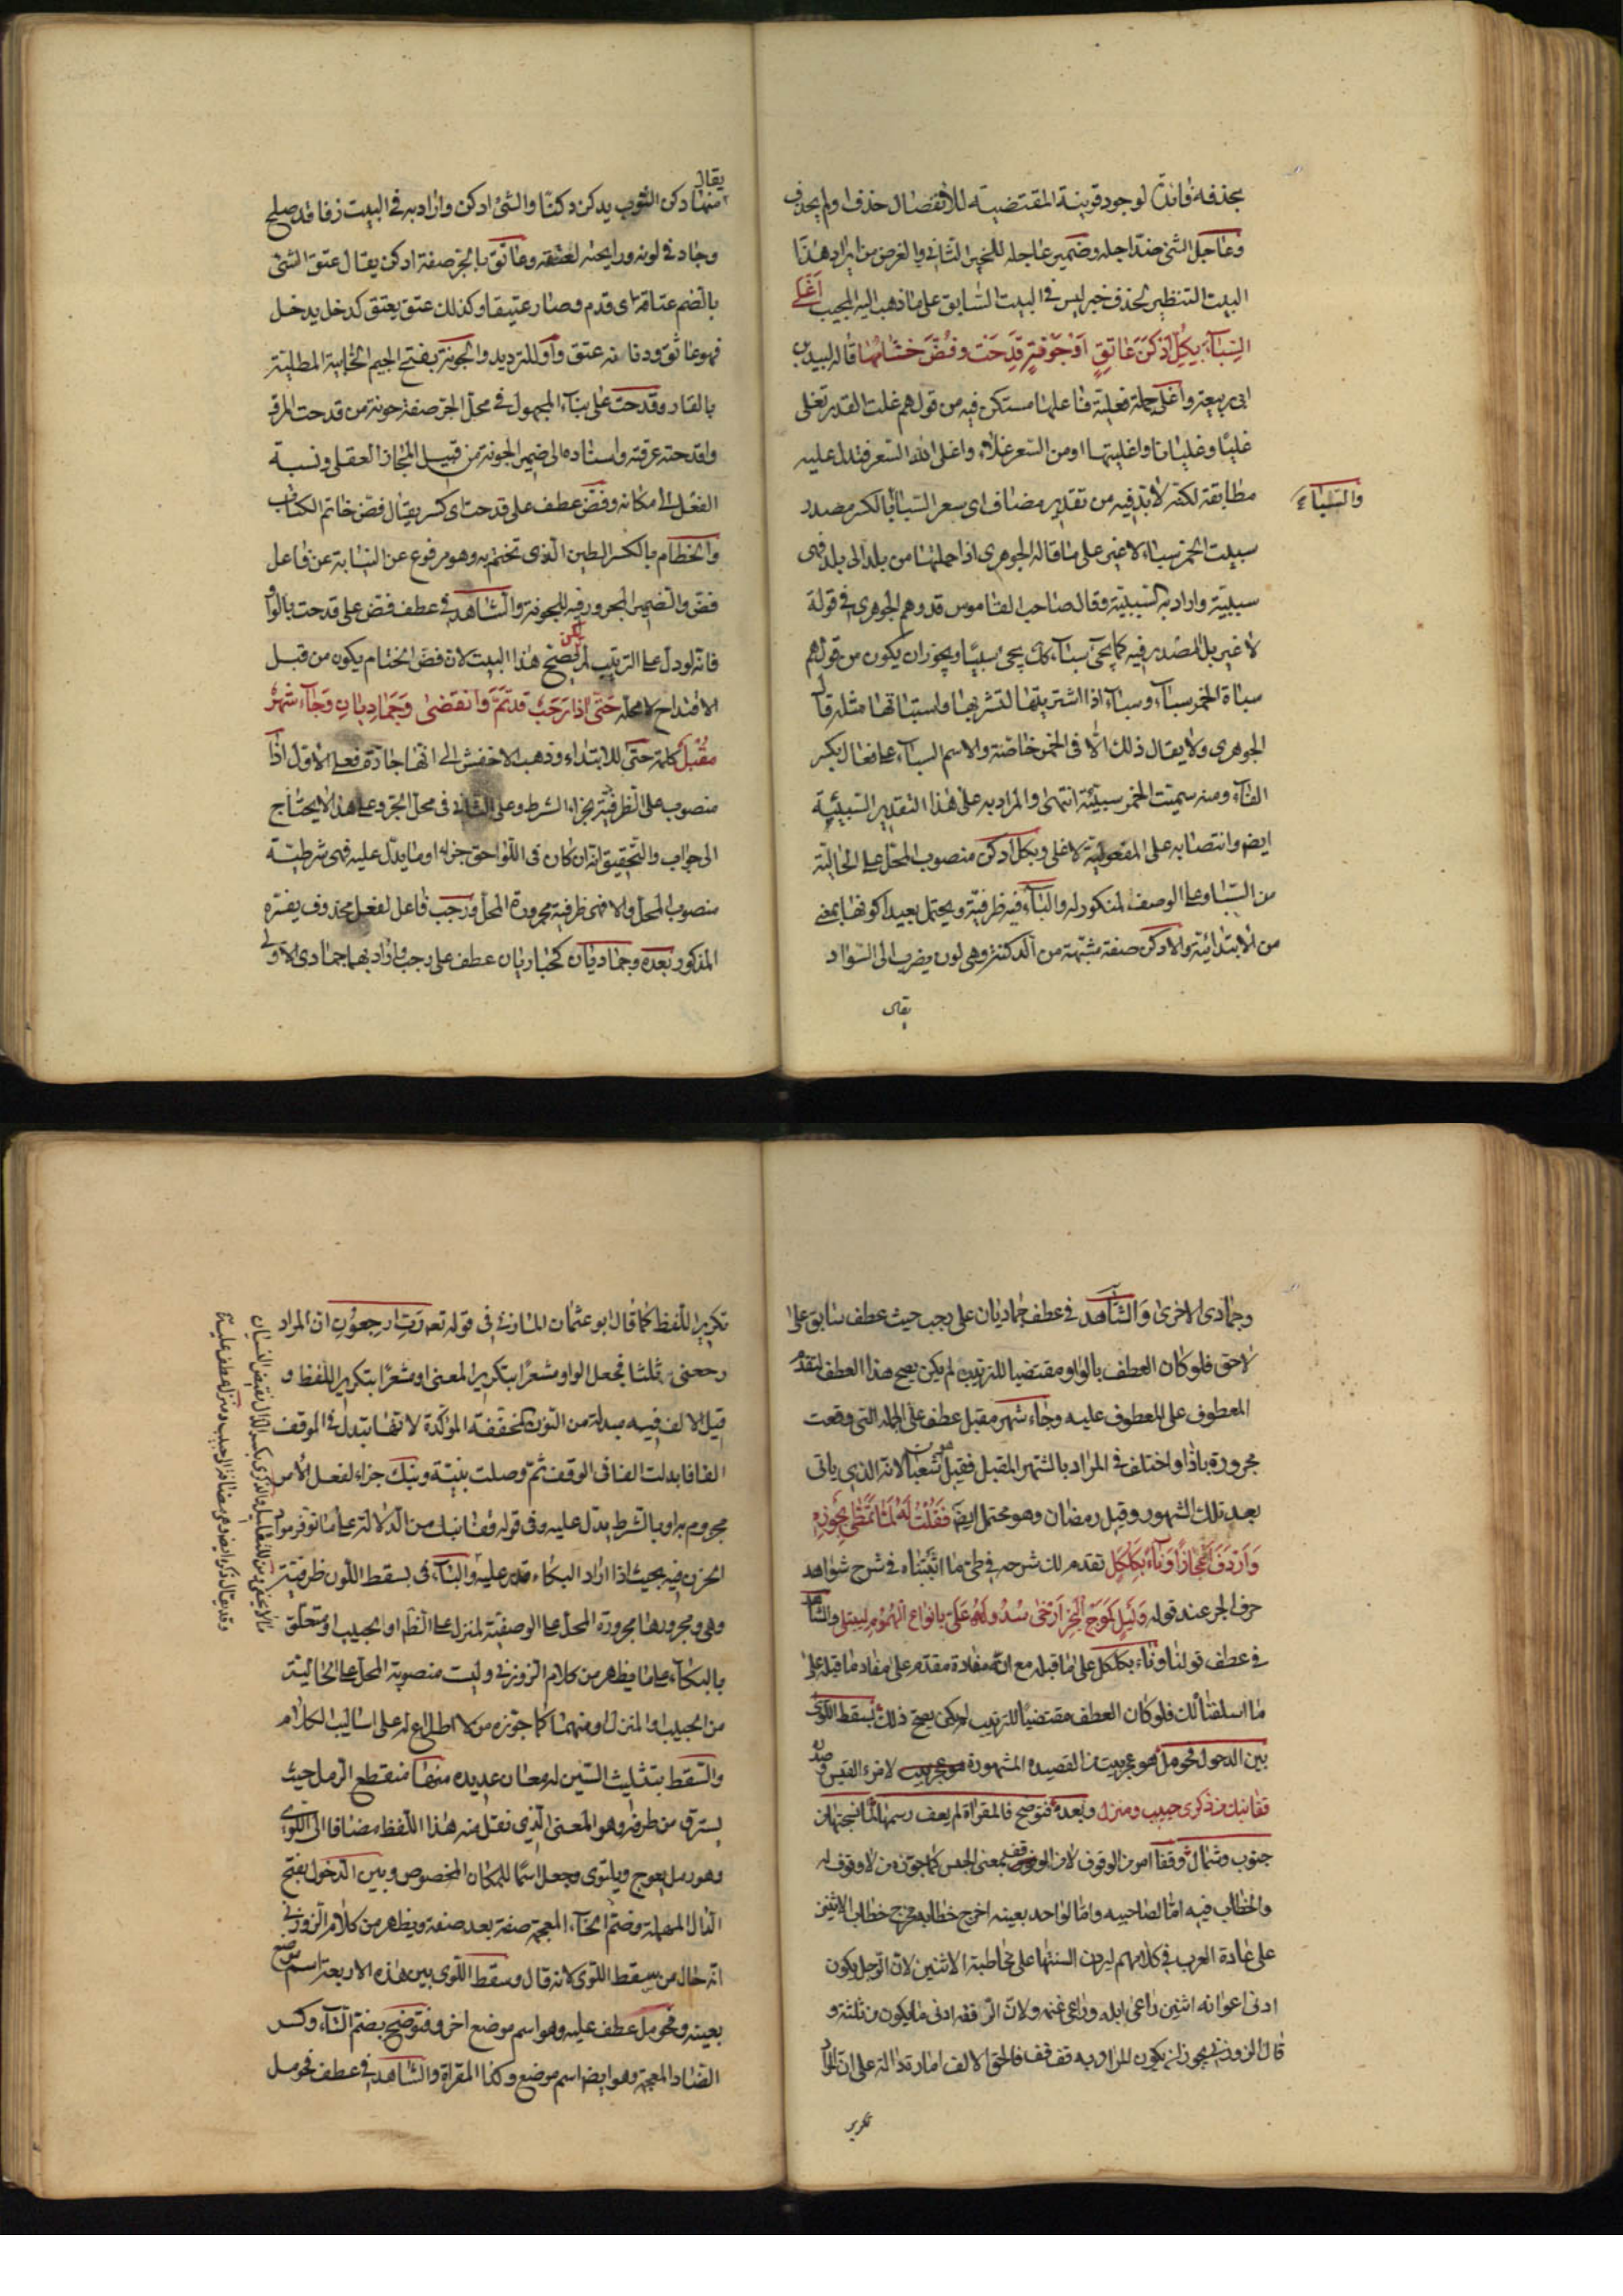 بحذفه فانذا لوجود قرينة المقتضية للانفصال حذف ولم يحذف
وعاجل الشئ ضد اجله وضمير عاجله للخير الثاني والغرض من ايراد هذا
البيت التنظير لحذف خبر ليس في البيت السابق على ما ذهب اليه المجيب اَغْلى
السِباءَ بكلِّ اَدْكَنَ عَاتِقٍ اَوْجَوْنَةٍ قُدِحَت وفُضَّ خِتامُها قاله لبيد بن
ابي ربيعة واغلى جملة فعلية فاعلها مستكن فيه من قولهم غلت القدر تغلى
غليًا وغليانا واغليتها او من السعر غلاء واغلى الله السعر فتدل عليه
والسباء
مطابقة لكنه لا بد فيه من تقدير مضاف اى سعر السباء بالكسر مصدر
سبيت الخمر سباء لا غير على ما قاله الجوهرى اذا حملتها من بلد الى بلد فهى
سبيّة واراد به السبيّة وقال صاحب القاموس قد وهم الجوهرى في قوله
لا غير بل المصدر فيه كما يجئ سباء كك يجئ سبيًا ويجوز ان يكون من قولهم
سبأة الخمر سباء وسباء اذا اشتريتها لتشربها واستباتها مثله قال
الجوهرى ولا يقال ذلك الّا فى الخمر خاصّة والاسم السباء على فعال بكسر
الفاء ومنه سميت الخمر سبيئة انتهى والمراد به على هذا التقدير السبيئية
ايض وانتصابه على المفعولية لاغلى وبكل ادكن منصوب المحل على الحالية
من السباء وعلى الوصف المنكور له والباء فيه ظرفية ويحتمل بعيدا كونها بمعنى
من الابتدائية والادكن صفة مشبهة من الدكنة وهى لون يضرب الى السواد
يقال
يقال
منها دكن الثوب يدكن دكنًا والشئ ادكن واراد به في البيت زقا قد صلح
وجاد في لونه ورايحته لعتقه وعاتق بالجر صفة ادكن يقال عتق الشئ
بالضم عتاقة اى قدم وصار عتيقا وكذلك عتق يعتق كدخل يدخل
فهو عاتق ودنانه عتق واو للترديد والجونة بفتح الجيم الخابية المطلية
بالقار وقدحت على بناء المجهول في محل الجر صفة جونة من قدحت المرق
واقدحته غرفته واسناده الى ضمير الجونة من قبيل المجاز العقلى ونسبة
الفعل الى مكانه وفض عطف على قدحت اى كسر يقال فض خاتم الكتاب
والختام بالكسر الطين الذى تختم به وهو مرفوع عن النيابة عن فاعل
فض والضمير المجرور فيه للجونة والشاهد في عطف فض على قدحت بالواو
فانه لو دل على الترتيب لم يكن يصح هذا البيت لان فض الختام يكون من قبل
الاقتداح لا محالة حَتّى اذا رَجَبٌ قد تَمَّ وَانقضى وَجُمَادَيانِ وَجَاءَ شَهْرٌ
مُقْبِلٌ كلمة حتى للابتداء وذهب الاخفش الى انها جارة فعلى الاول اذا
منصوب على الظرفية بجزاء الشرط وعلى الثاني في محل الجر وعلى هذا لا يحتاج
الى جواب والتحقيق انه ان كان في اللواحق جزاء او ما يدل عليه فهى شرطية
منصوب المحل والا فهى ظرفية مجرورة المحل ورجب فاعل لفعل محذوف يفسره
المذكور بعده وجماديان كحباريان عطف على رجب واراد بهما جمادى الاولى
وجمادى الاخرى والشاهد في عطف جماديان على رجب حيث عطف سابق على
لاحق فلو كان العطف بالواو مقتضيا للترتيب لم يكن يصح هذا العطف لتقدم
المعطوف على المعطوف عليه وجاء شهر مقبل عطف على الجملة التى وقعت
مجرورة باذا واختلف في المراد بالشهر المقبل فقيل هو شعبان لانه الذي ياتى
بعد تلك الشهور وقيل رمضان وهو محتمل ايض فَقُلْتُ لَهُ لَمّا تَمَطّى بِجَوْزِهِ
وَاَرْدَفَ اَعْجَازًا وَنَاءَ بِكَلْكَلٍ تقدم لك شرحه في طى ما اثبتناه في شرح شواهد
حرف الجر عند قوله وَلَيْلٍ كَمَوْجِ الْبَحْرِ اَرْخَى سُدُولَهُ عَلَىَّ بِانواعِ الهُمُومِ لِيَبْتَلى والشاهد
في عطف قولنا وناء بكلكل على ما قبله مع ان مفاده مقدم على مفاد ما قبله على
ما اسلفنا لك فلو كان العطف مقتضيًا للترتيب لم يكن يصح ذلك بسقط اللوى
بين الدخول فحومل هو عجز بيت من القصيدة المشهورة لامرء القيس وصدره
قفا نبك من ذكرى حبيب ومنزل وبعده فتوضح فالمقراة لم يعف رسمها لما نسجتها من
جنوب وشمال وقفا امر من الوقوف لا من الوقف بمعنى الحبس كما جوّزه من لا وقوف له
والخطاب فيه امّا لصاحبيه واما لواحد بعينه اخرج خطابه مخرج خطاب الاثنين
على عادة العرب في كلامهم لمرون السنتها على مخاطبة الاثنين لان الرجل يكون
ادنى اعوانه اثنين راعى ابله وراعى غنمه ولان الرفقة ادنى ما يكون من ثلثة و
قال الزوزني يجوز ان يكون المراد به قف قف فالحق الالف امارة دالة على ان المراد
تكرير
تكرير اللفظ كما قال ابو عثمان المازني في قوله تعه رَبِّ ارجعون ان المراد
رجعنى ثلثا فجعل الواو مشعرًا بتكرير المعنى او مشعرًا بتكرير اللفظ و
قيل الالف فيه مبدلة من النون المخففة المؤكدة لانها تبدل في الموقف
الفا فابدلت الفا فى الوقف ثم وصلت بنيته ونبك جزاء لفعل الامر
مجزوم به او بالشرط يدل عليه وفى قوله قفا نبك من الدلالة على ما توفر مواد
الحزن فيه بحيث اذا اراد البكاء قدر عليه والباء فى بسقط اللوى ظرفية
وهى ومجرورها مجرورة المحل على الوصفية لمنزل على الظاهر او الحبيب او متعلق
بالبكاء على ما يظهر من كلام الزوزني وليست منصوبة المحل على الحالية
من الحبيب او المنزل او منهما كما جوّزه من لا اطلاع له على اساليب الكلام
والسقط بتثليث السين له معان عديده منها منقطع الرمل حيث
يسترق من طرفه وهو المعنى الذي نقل منه هذا اللفظ مضافا الى اللوى
وهو رمل يعوج ويلتوى وجعل اسمًا للمكان المخصوص وبين الدخول بفتح
الدال المهملة وضم الخاء المعجمة صفة بعد صفة ويظهر من كلام الزوزني
انه حال من سقط اللوى لانه قال وسقط اللوى بين هذه الاربعة اسم موضع
بعينه وفحومل عطف عليه وهو اسم موضع اخر وفتوضح بضم التاء وكسر
الضاد المعجمة وهو ايض اسم موضع وكذا المقراة والشاهد في عطف فحومل